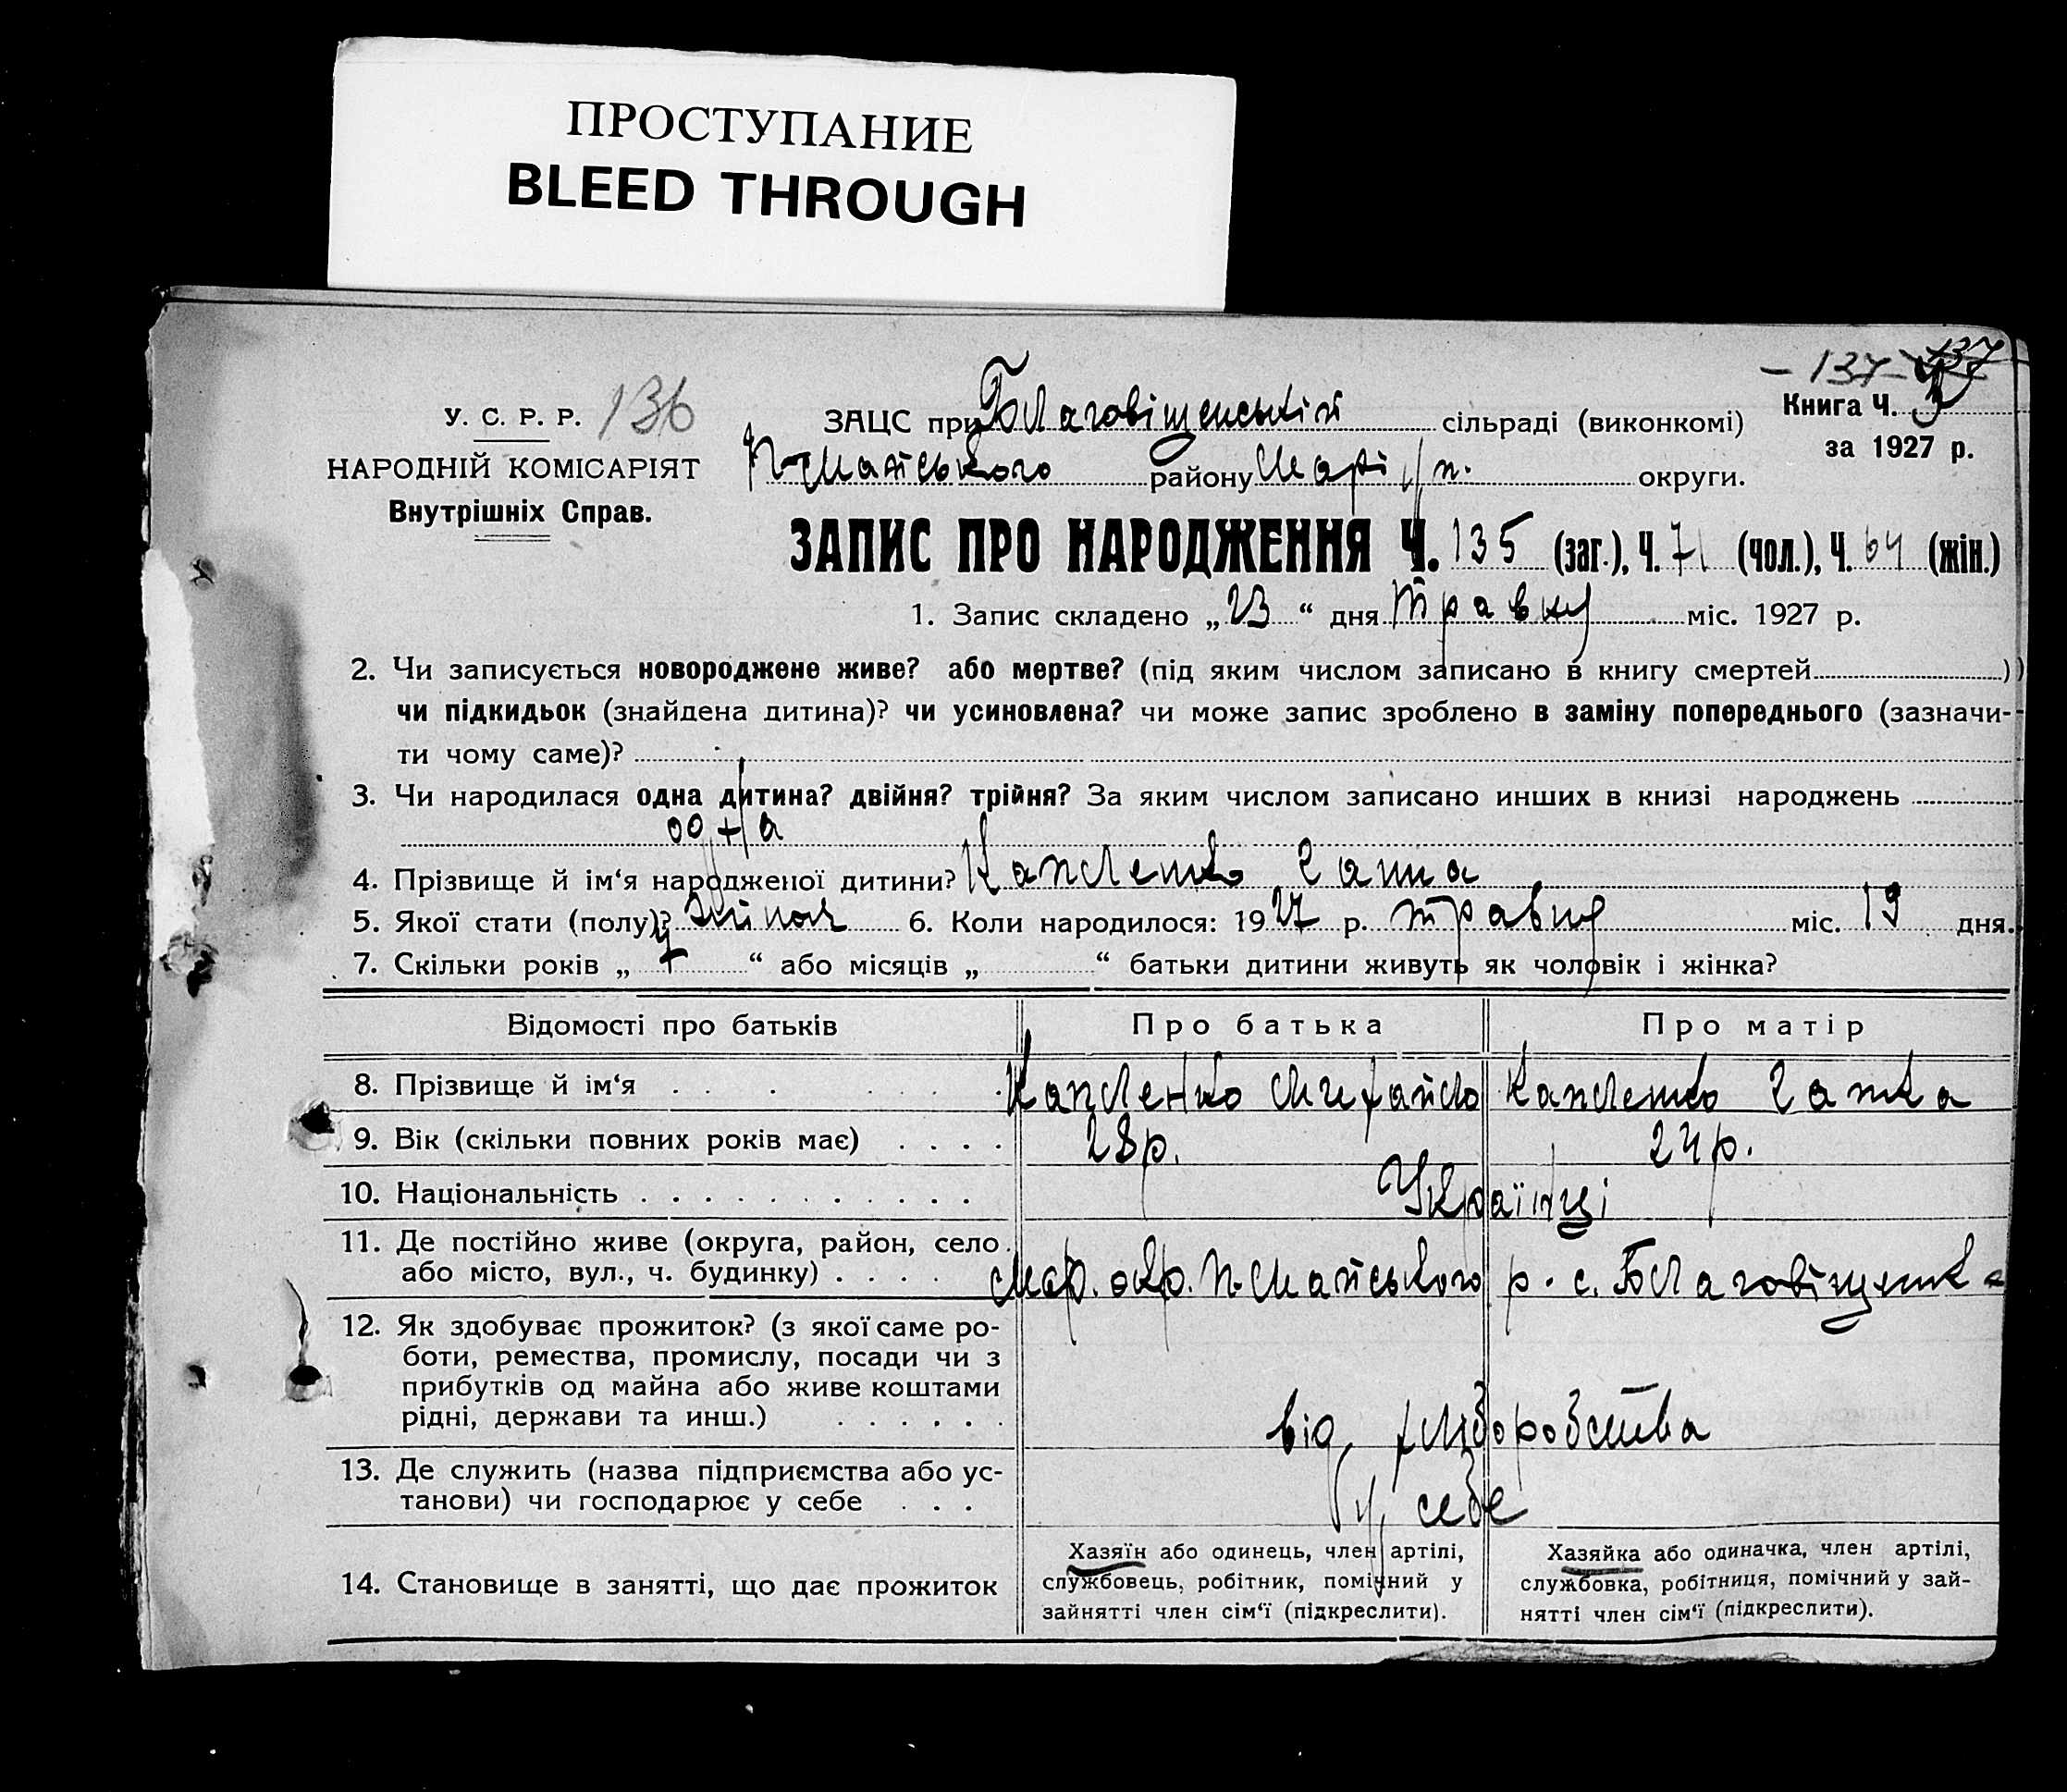 ПРОСТУПАНИЕ
BLEED THROUGH
- 137 - 137
У. С. Р. Р. 136
НАРОДНІЙ КОМІСАРІЯТ
Внутрішніх Справ.
ЗАЦС при Благовіщенській сільраді (виконкомі)
П-Майського району Маріуп. округи.
Книга Ч.
за 1927 р.
ЗАПИС ПРО НАРОДЖЕННЯ Ч. 135 (заг.), Ч. 71 (чол.), Ч. 64 (жін.)
1. Запис складено „ 23 “ дня травну міс. 1927 р.
2. Чи записується новороджене живе? або мертве? (під яким числом записано в книгу смертей )
чи підкидьок (знайдена дитина)? чи усиновлена? чи може запис зроблено в заміну попереднього (зазначи-
ти чому саме)?
3. Чи народилася одна дитина? двійня? трійня? За яким числом записано инших в книзі народжень
одна
4. Прізвище й ім‘я народженої дитини? Капленко Ганна
5. Якої стати (полу)? жіноч 6. Коли народилося: 1927 р. травну міс. 19 дня.
7. Скільки років „ “ або місяців „ “ батьки дитини живуть як чоловік і жінка?
Відомості про батьків Про батька Про матір
8. Прізвище й ім‘я Капленко Михайло Капленко Ганка
9. Вік (скільки повних років має) 28р. 24р.
10. Національність Українці
11. Де постійно живе (округа, район, село
або місто, вул., ч. будинку) Мар. окр. П-Майського р. с. Благовіщенка
12. Як здобуває прожиток? (з якої саме ро-
боти, ремества, промислу, посади чи з
прибутків од майна або живе коштами
рідні, держави та инш.) від хліборобства
13. Де служить (назва підприємства або ус-
танови) чи господарює у себе у себе
14. Становище в занятті, що дає прожиток
Хазяїн або одинець, член артілі,
службовець, робітник, помічний у
зайнятті член сім‘ї (підкреслити).
Хазяйка або одиначка, член артілі,
службовка, робітниця, помічний у зай-
нятті член сім‘ї (підкреслити).